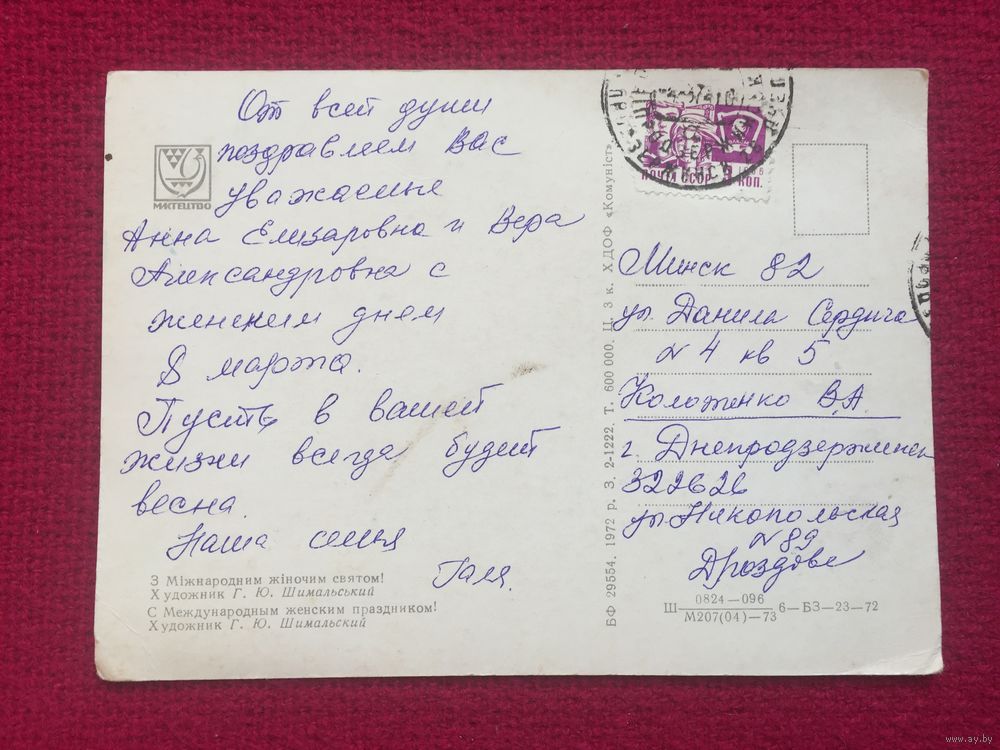 От всей души
поздравляем Вас
уважаемые
Анна Елизаровна и Вера
Александровна с
женским днем
8 марта.
Пусть в вашей
жизни всегда будет
весна.
Наша семья
Галя.
МИСТЕЦТВО
З Міжнародним жіночим святом!
Художник Г. Ю. Шимальський
С Международным женским праздником!
Художник Г. Ю. Шимальский
БФ 29554. 1972 р. З. 2-1222. Т. 600 000. Ц. 3 к. ХДОФ «Комуніст»
ПОЧТА СССР
КОП.
Минск 82
ул. Данила Сердича
№ 4 кв 5
Коложенко В.А.
г. Днепродзержинск
322626
ул. Никопольская
№ 89
Дроздове
Ш 0824—096 6—БЗ—23—72
М207(04)—73
www.ay.by